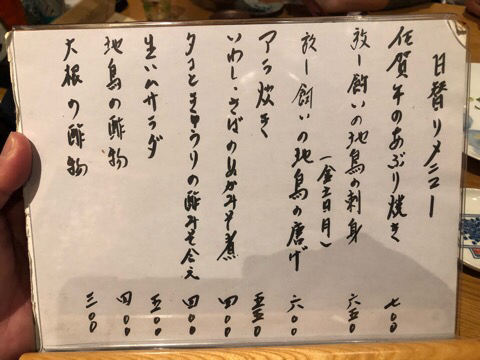 日替りメニュー
佐賀牛のあぶり焼き 七〇〇
放し飼いの地鳥の刺身 六五〇
(金土日月)
放し飼いの地鳥の唐げ 六〇〇
アラ炊き 五五〇
いわし・さばのぬかみそ煮 四〇〇
タコときゅうりの酢みそ合え 四〇〇
生ハムサラダ 五〇〇
地鳥の酢物 四〇〇
大根の酢物 三〇〇